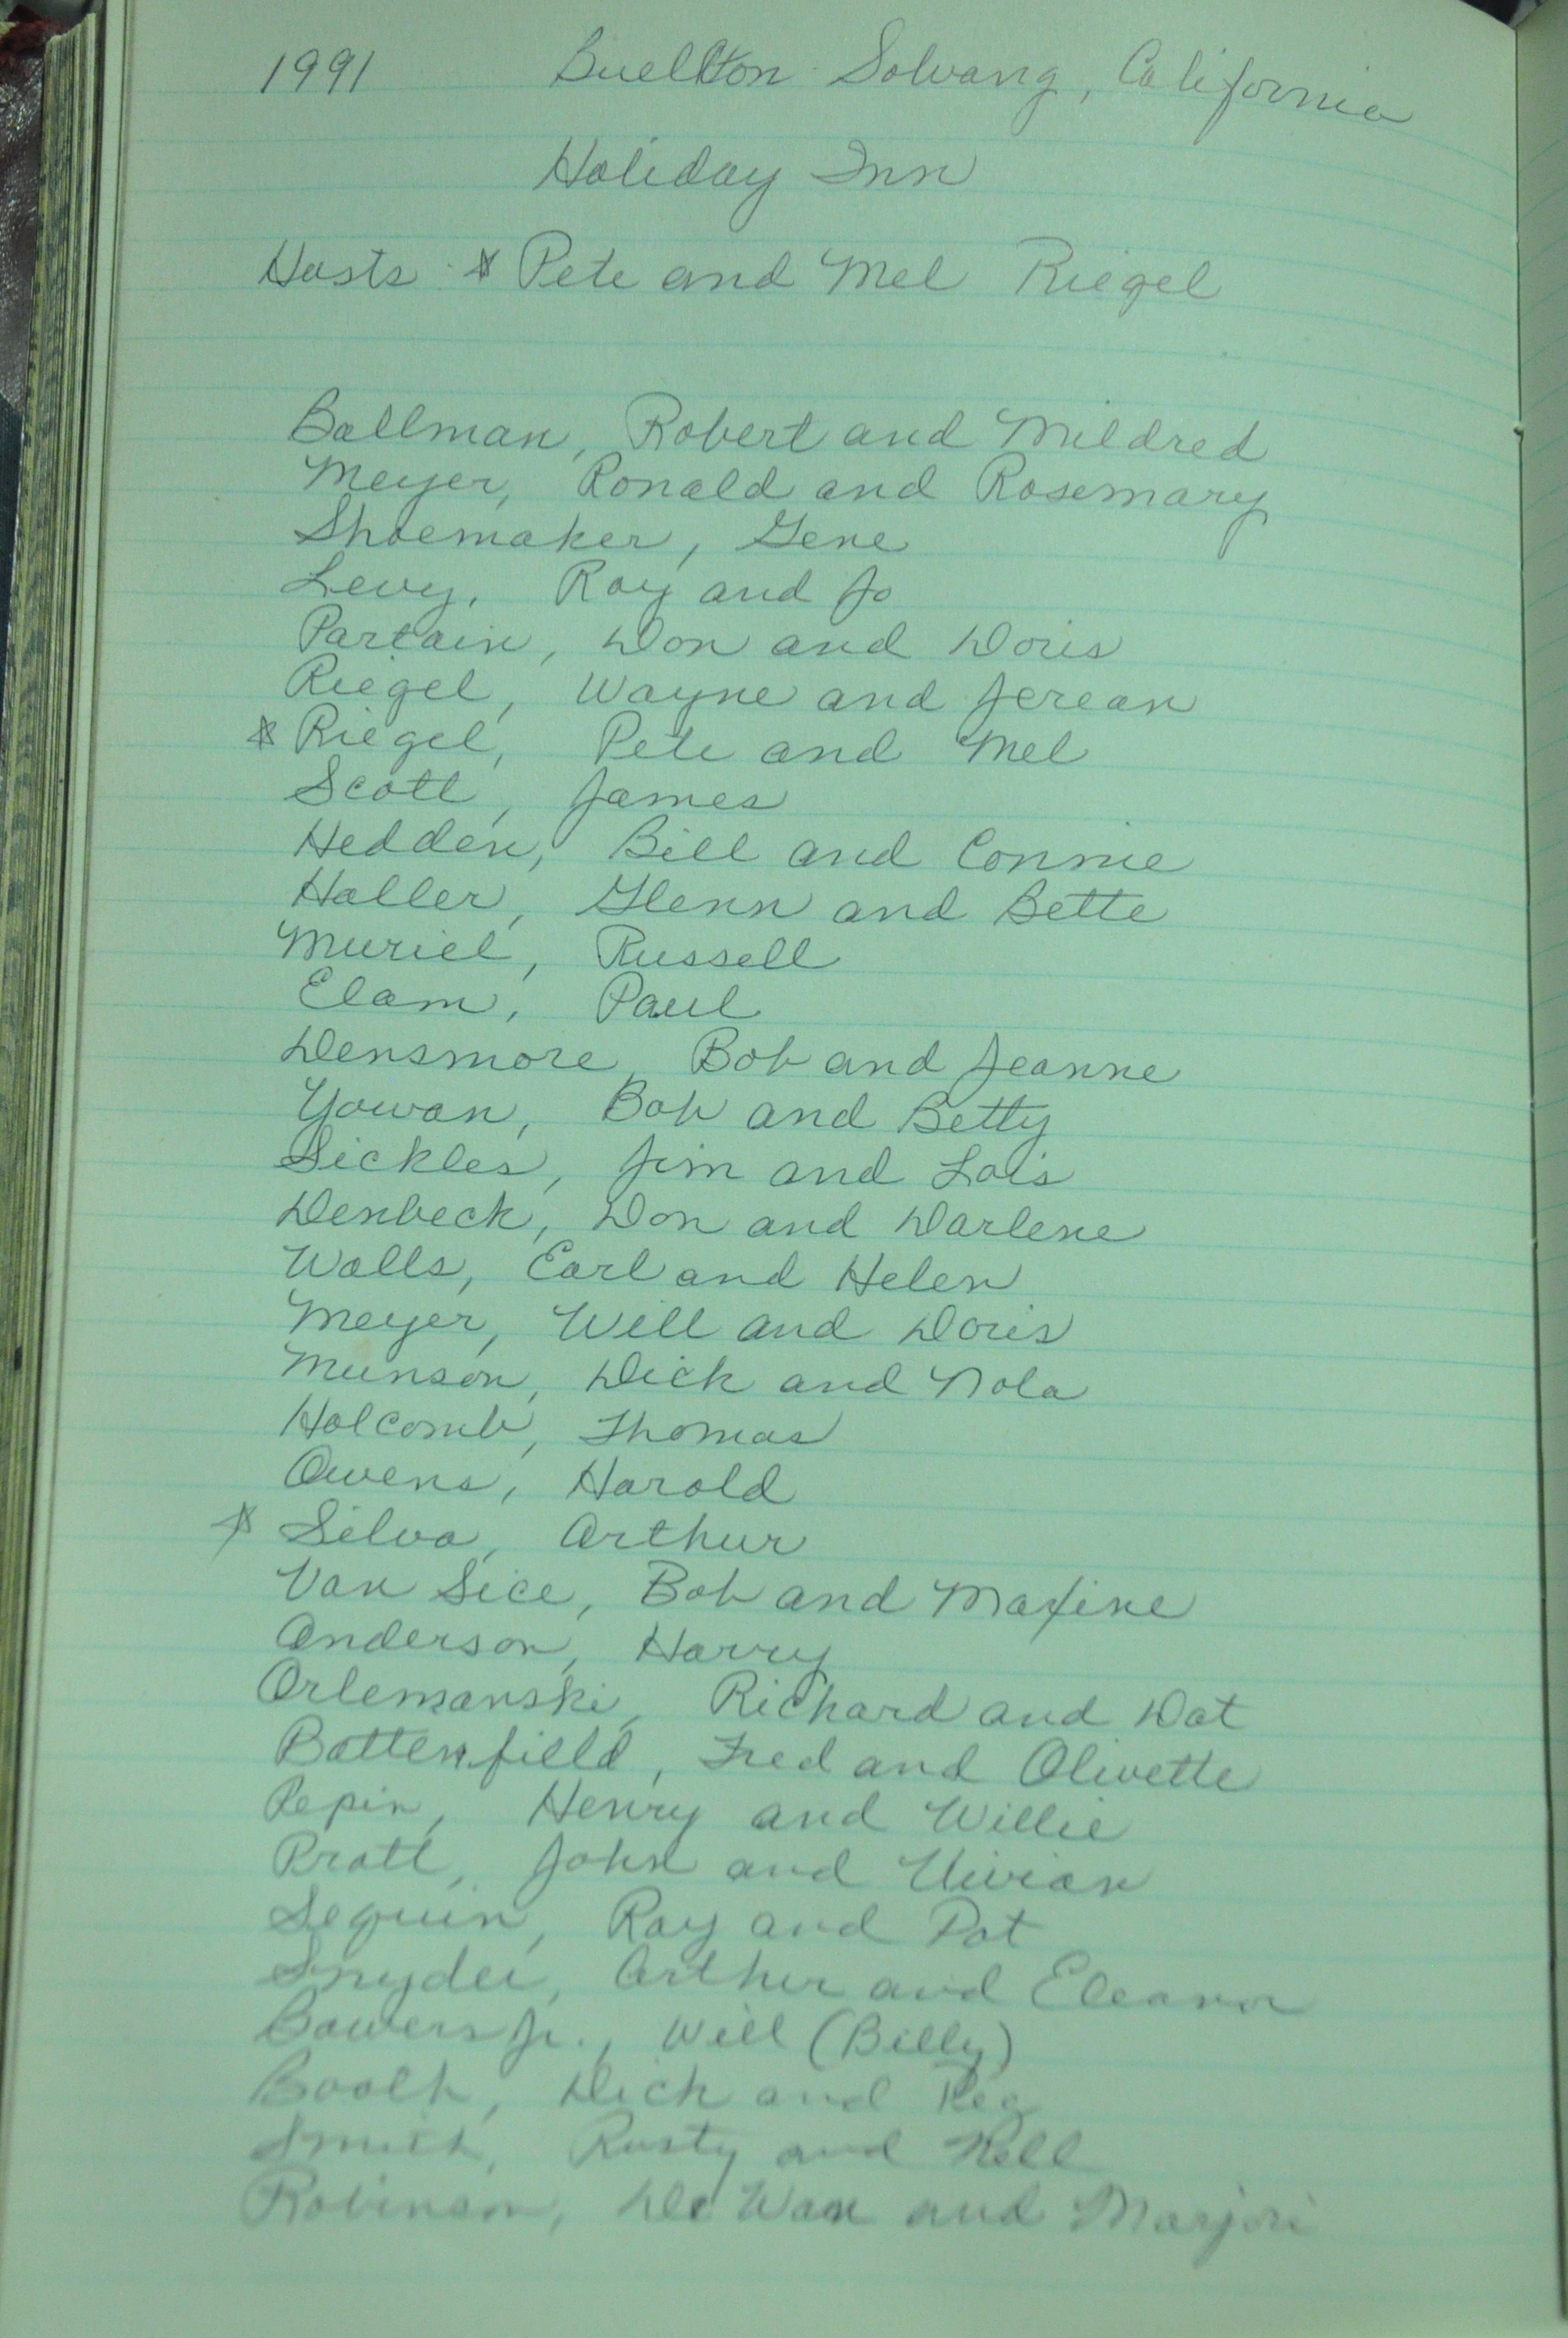 1991 Buellton Solvang, California
Holiday Inn
Hosts * Pete and Mel Riegel
Ballman, Robert and Mildred
Meyer, Ronald and Rosemary
Shoemaker, Gene
Levy, Roy and Jo
Partain, Don and Doris
Riegel, Wayne and Jerean
* Riegel, Pete and Mel
Scott, James
Hedden, Bill and Connie
Haller, Glenn and Bette
Muriel, Russell
Elam, Paul
Densmore, Bob and Jeanne
Yowan, Bob and Betty
Sickles, Jim and Lois
Denbeck, Don and Darlene
Walls, Earl and Helen
Meyer, Will and Doris
Munson, Dick and Nola
Holcomb, Thomas
Owens, Harold
* Silva, Arthur
Van Sice, Bob and Maxine
Anderson, Harry
Orlemanski, Richard and Dot
Battenfield, Fred and Olivette
Pepin, Henry and Willie
Pratt, John and Vivian
Seguin, Ray and Pat
Snyder, Arthur and Eleanor
Bowers Jr., Will (Billy)
Booth, Dick and Peg
Smith, Rusty and Nell
Robinson, De Wan and